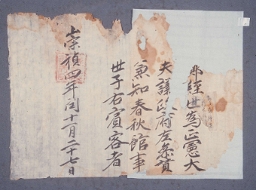 鄭經世爲正憲大
夫議政府左參贊
兼知春秋館事
世子右賓客者
崇禎四年閏十一月二十七日